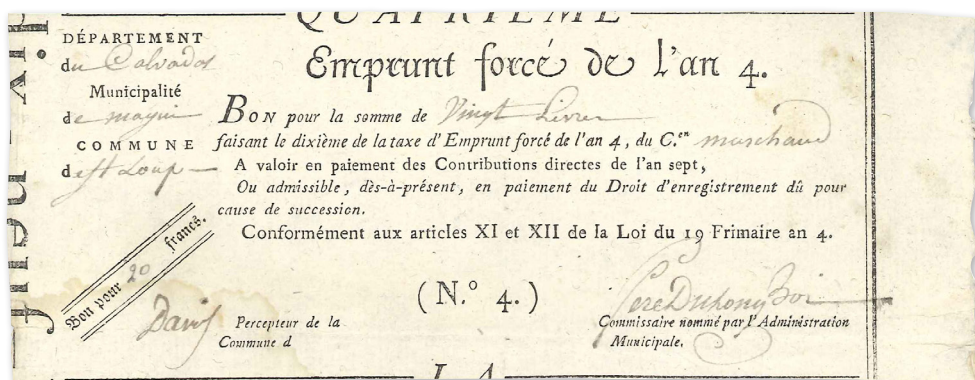 QUATRIÈME
DÉPARTEMENT
du Calvados
Emprunt forcé de l'an 4.
Municipalité
de
BON pour la somme de Vingt Livres
COMMUNE
faisant le dixième de la taxe d'Emprunt forcé de l'an 4, du C.en marchand
de St Loup
A valoir en paiement des Contributions directes de l'an sept,
Ou admissible, dès-à-présent, en paiement du Droit d'enregistrement dû pour
cause de succession.
Conformément aux articles XI et XII de la Loi du 19 Frimaire an 4.
Bon pour 20 francs.
(N.° 4.)
Percepteur de la
Commune d
Commissaire nommé par l'Administration
Municipale.
LA